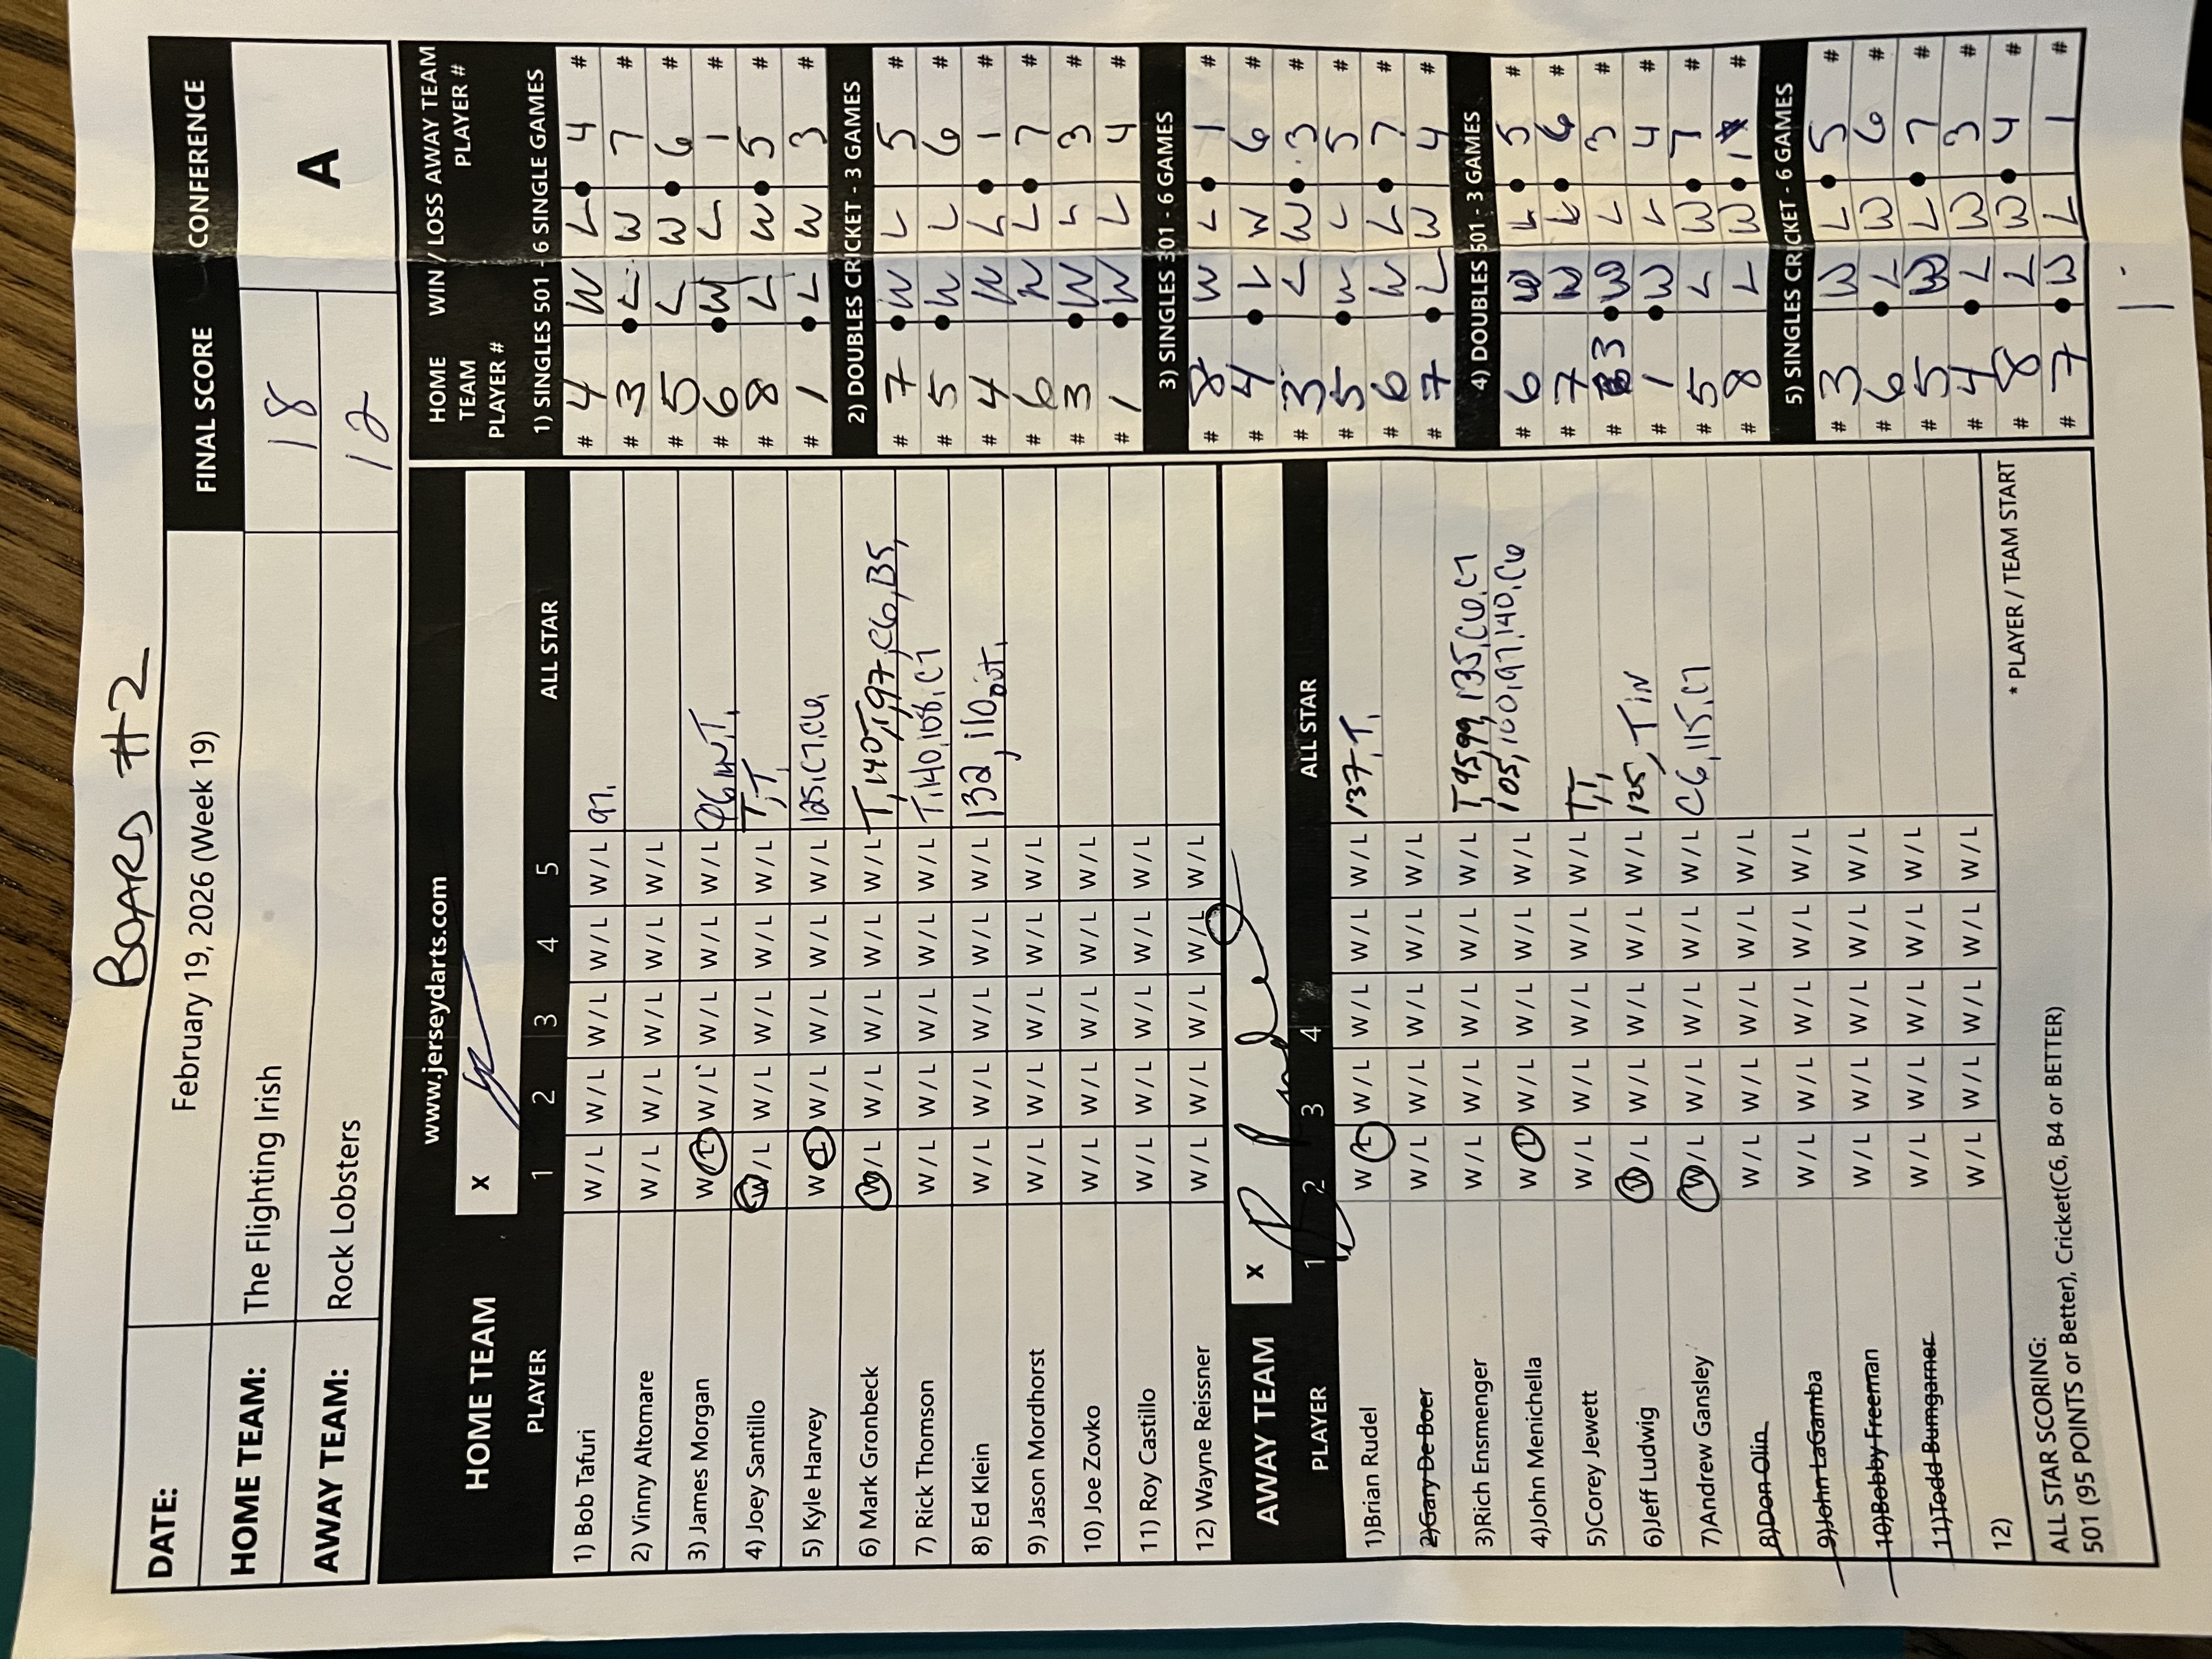 BOARD #2
DATE: February 19, 2026 (Week 19) FINAL SCORE CONFERENCE
HOME TEAM: The Flighting Irish 18 A
AWAY TEAM: Rock Lobsters 12
www.jerseydarts.com
HOME TEAM X
PLAYER 1 2 3 4 5 ALL STAR
1) Bob Tafuri W / L W / L W / L W / L W / L 97,
2) Vinny Altomare W / L W / L W / L W / L W / L
3) James Morgan W / L W / L W / L W / L W / L 96 IN, T,
4) Joey Santillo W / L W / L W / L W / L W / L T, T,
5) Kyle Harvey W / L W / L W / L W / L W / L 125, C7, C6,
6) Mark Gronbeck W / L W / L W / L W / L W / L T, 140, T, 97, C6, B5,
7) Rick Thomson W / L W / L W / L W / L W / L T, 140, 108, C7
8) Ed Klein W / L W / L W / L W / L W / L 132, 110 out,
9) Jason Mordhorst W / L W / L W / L W / L W / L
10) Joe Zovko W / L W / L W / L W / L W / L
11) Roy Castillo W / L W / L W / L W / L W / L
12) Wayne Reissner W / L W / L W / L W / L W / L
AWAY TEAM X
PLAYER 1 2 3 4 ALL STAR
1)Brian Rudel W / L W / L W / L W / L W / L 137, T,
2)Gary De Boer W / L W / L W / L W / L W / L
3)Rich Ensmenger W / L W / L W / L W / L W / L T, 95, 99, 135, C6, C7
4)John Menichella W / L W / L W / L W / L W / L 105, 100, 97, 140, C6
5)Corey Jewett W / L W / L W / L W / L W / L T, T,
6)Jeff Ludwig W / L W / L W / L W / L W / L 125, T IN
7)Andrew Gansley W / L W / L W / L W / L W / L C6, 115, C7
8)Don Olin W / L W / L W / L W / L W / L
9)John LaGamba W / L W / L W / L W / L W / L
10)Bobby Freeman W / L W / L W / L W / L W / L
11)Todd Bumgarner W / L W / L W / L W / L W / L
12) W / L W / L W / L W / L W / L
* PLAYER / TEAM START
ALL STAR SCORING:
501 (95 POINTS or Better), Cricket(C6, B4 or BETTER)
HOME TEAM PLAYER # WIN / LOSS AWAY TEAM PLAYER #
1) SINGLES 501 - 6 SINGLE GAMES
# 4 W L 4 #
# 3 L W 7 #
# 5 L W 6 #
# 6 W L 1 #
# 8 L W 5 #
# 1 L W 3 #
2) DOUBLES CRICKET - 3 GAMES
# 7 W L 5 #
# 5 W L 6 #
# 4 W L 1 #
# 6 W L 7 #
# 3 W L 3 #
# 1 W L 4 #
3) SINGLES 301 - 6 GAMES
# 8 W L 1 #
# 4 L W 6 #
# 3 L W 3 #
# 5 W L 5 #
# 6 W L 7 #
# 7 L W 4 #
4) DOUBLES 501 - 3 GAMES
# 6 W L 5 #
# 7 W L 6 #
# 3 W L 3 #
# 1 W L 4 #
# 5 L W 7 #
# 8 L W 1 #
5) SINGLES CRICKET - 6 GAMES
# 3 W L 5 #
# 6 L W 6 #
# 5 W L 7 #
# 4 L W 3 #
# 8 L W 4 #
# 7 W L 1 #